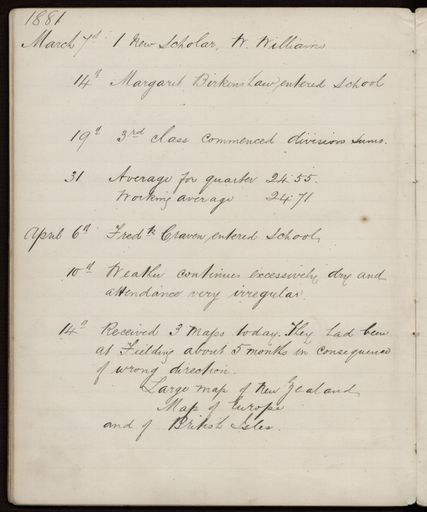 1881
March 7th 1 New Scholar, W. Williams
14th Margaret Birkinshaw entered School
19th 3rd class commenced division sums.
31 Average for quarter 24.55.
Working average 24.71
April 6th Fredk Craven entered School,
10th Weather continues excessively dry and
attendance very irregular.
14th Received 3 Maps today. They had been
at Fielding about 5 months in consequence
of wrong direction.
Large map of New Zealand
Map of Europe
and of British Isles.